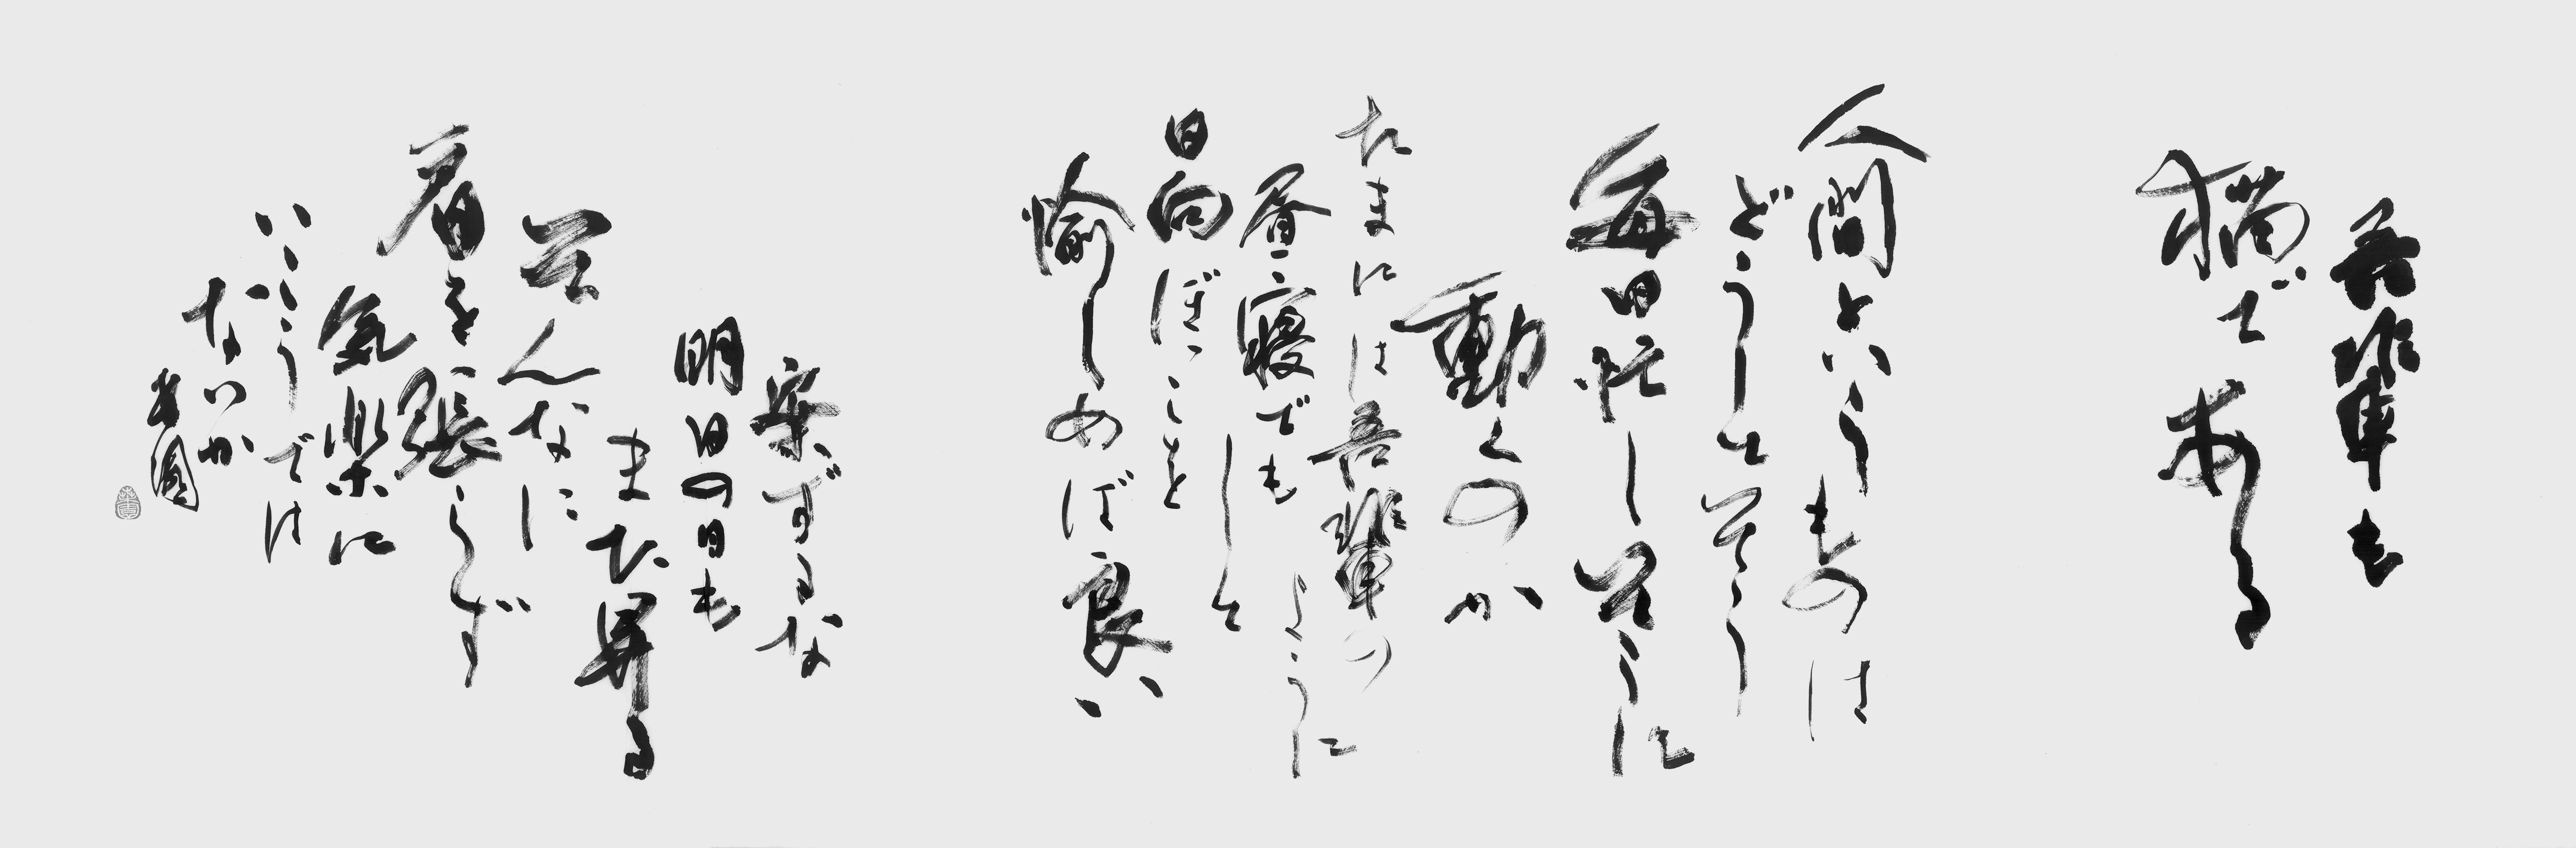 吾輩も
猫である
人間というものは
どうしてそう
毎日忙しそうに
動くのか
たまには吾輩の
ように
昼寝でも
して
日向ぼっこを
愉しめば良い
案ずるな
明日の日も
また昇る
そんなに
肩を張らず
気楽に
いこうでは
ないか